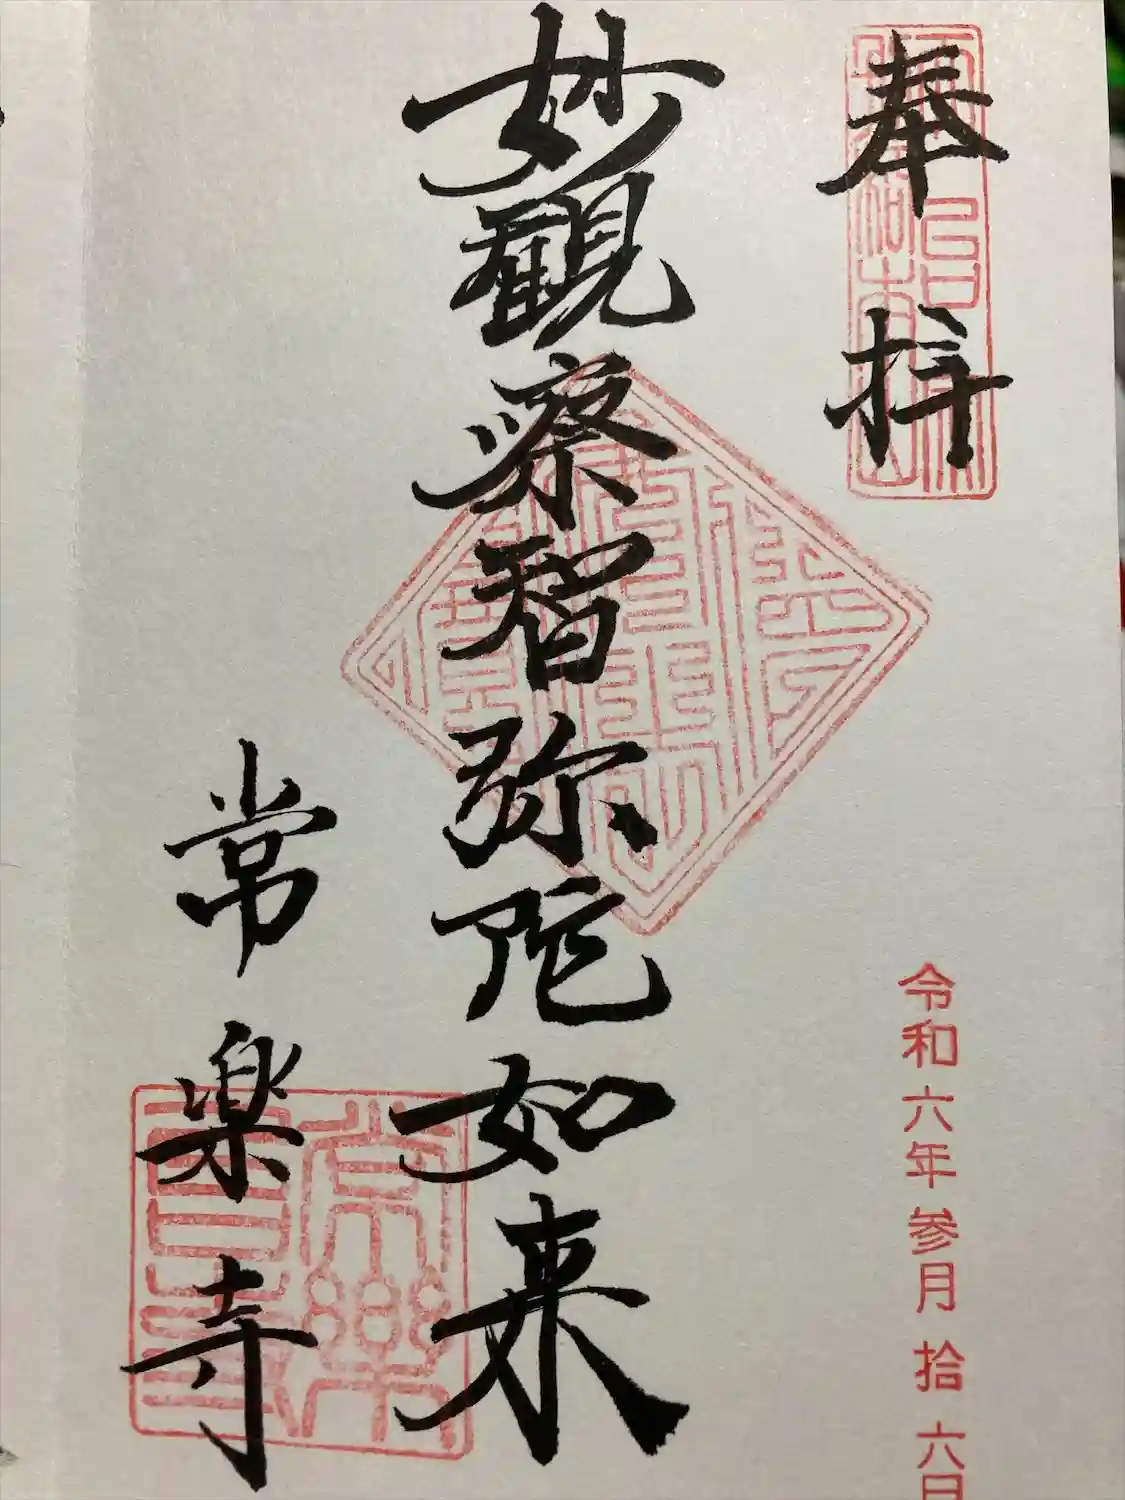 奉拝
令和六年参月拾六日
妙観察智弥陀如来
常楽寺